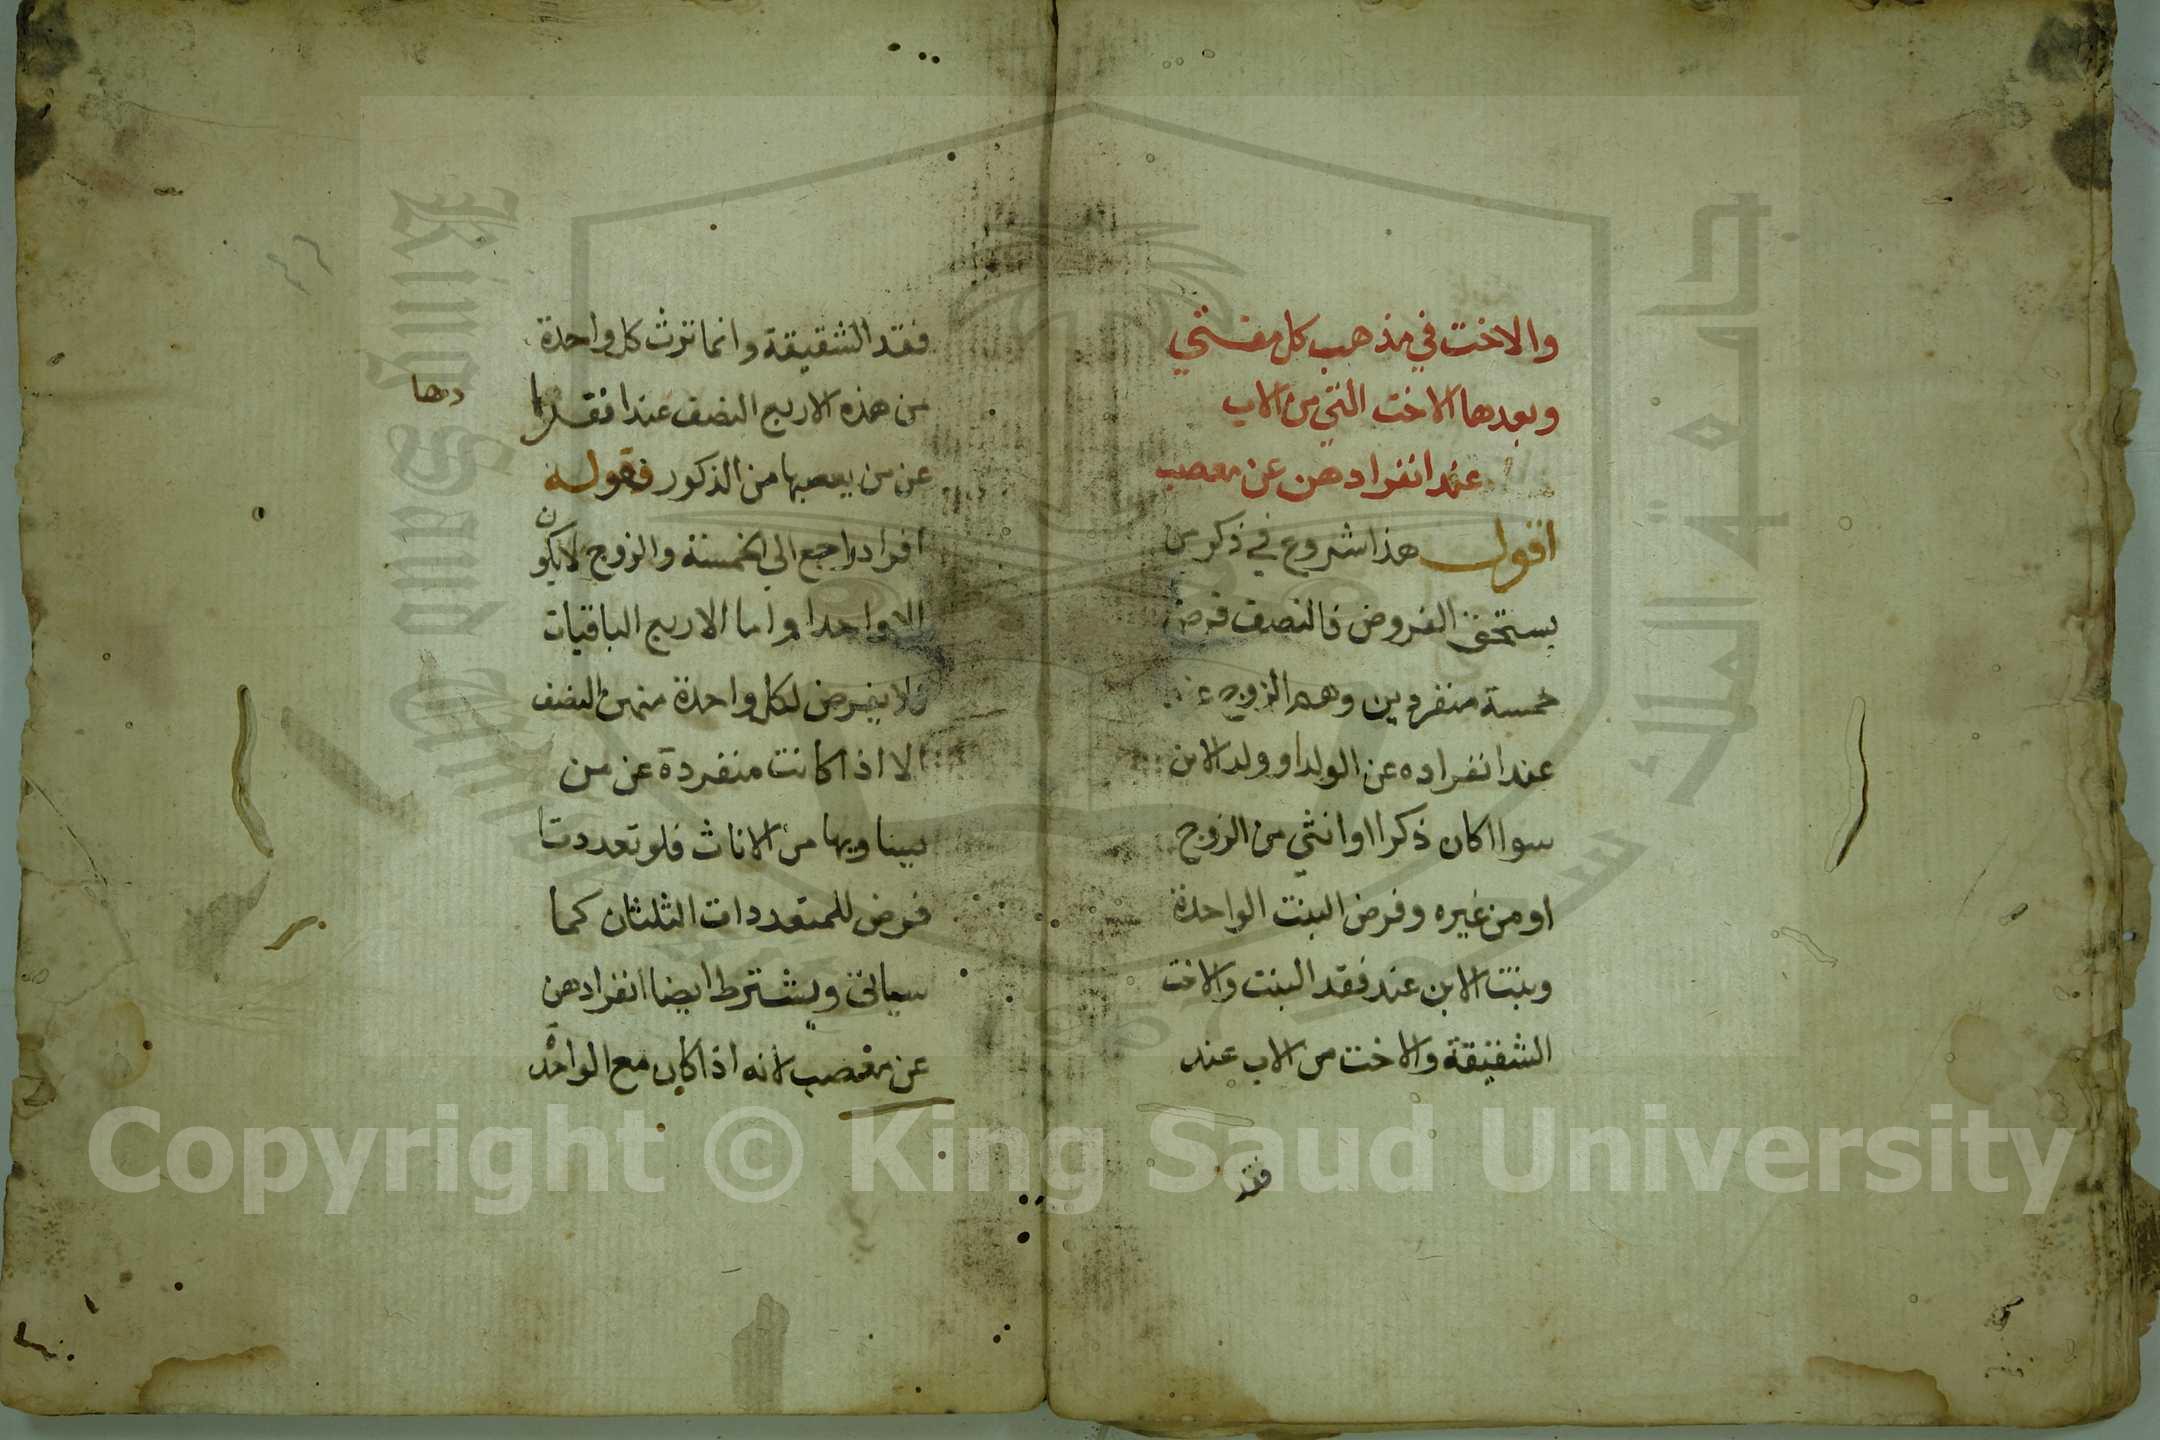 والاخت في مذهب كل مفتي
وبعدها الاخت التي من الاب
عند انفرادهن عن معصب
اقول هذا شروع في ذكر من
يستحق الفروض فالنصف فرض
خمسة منفردين وهم الزوج
عند انفراده عن الولد او ولد الابن
سوا كان ذكرا او انثي من الزوج
او من غيره وفرض البنت الواحدة
وبنت الابن عند فقد البنت والاخت
الشقيقة والاخت من الاب عند
فقد
فقد الشقيقة وانما ترث كل واحدة
من هذه الاربع النصف عند انفرادها
دها
عن من يعصبها من الذكور فقوله
افراد راجع الي الخمسة والزوج لا يكون
الا واحدا واما الاربع الباقيات
ولا يفرض لكل واحدة منهن النصف
الا اذا كانت منفردة عن من
يساويها من الاناث فلو تعددتا
فرض للمتعددات الثلثان كما
سياتي ويشترط ايضا انفرادهن
عن معصب لانه اذا كان مع الواحدة
Copyright © King Saud University
King Saud University
جامعة الملك سعود
1957